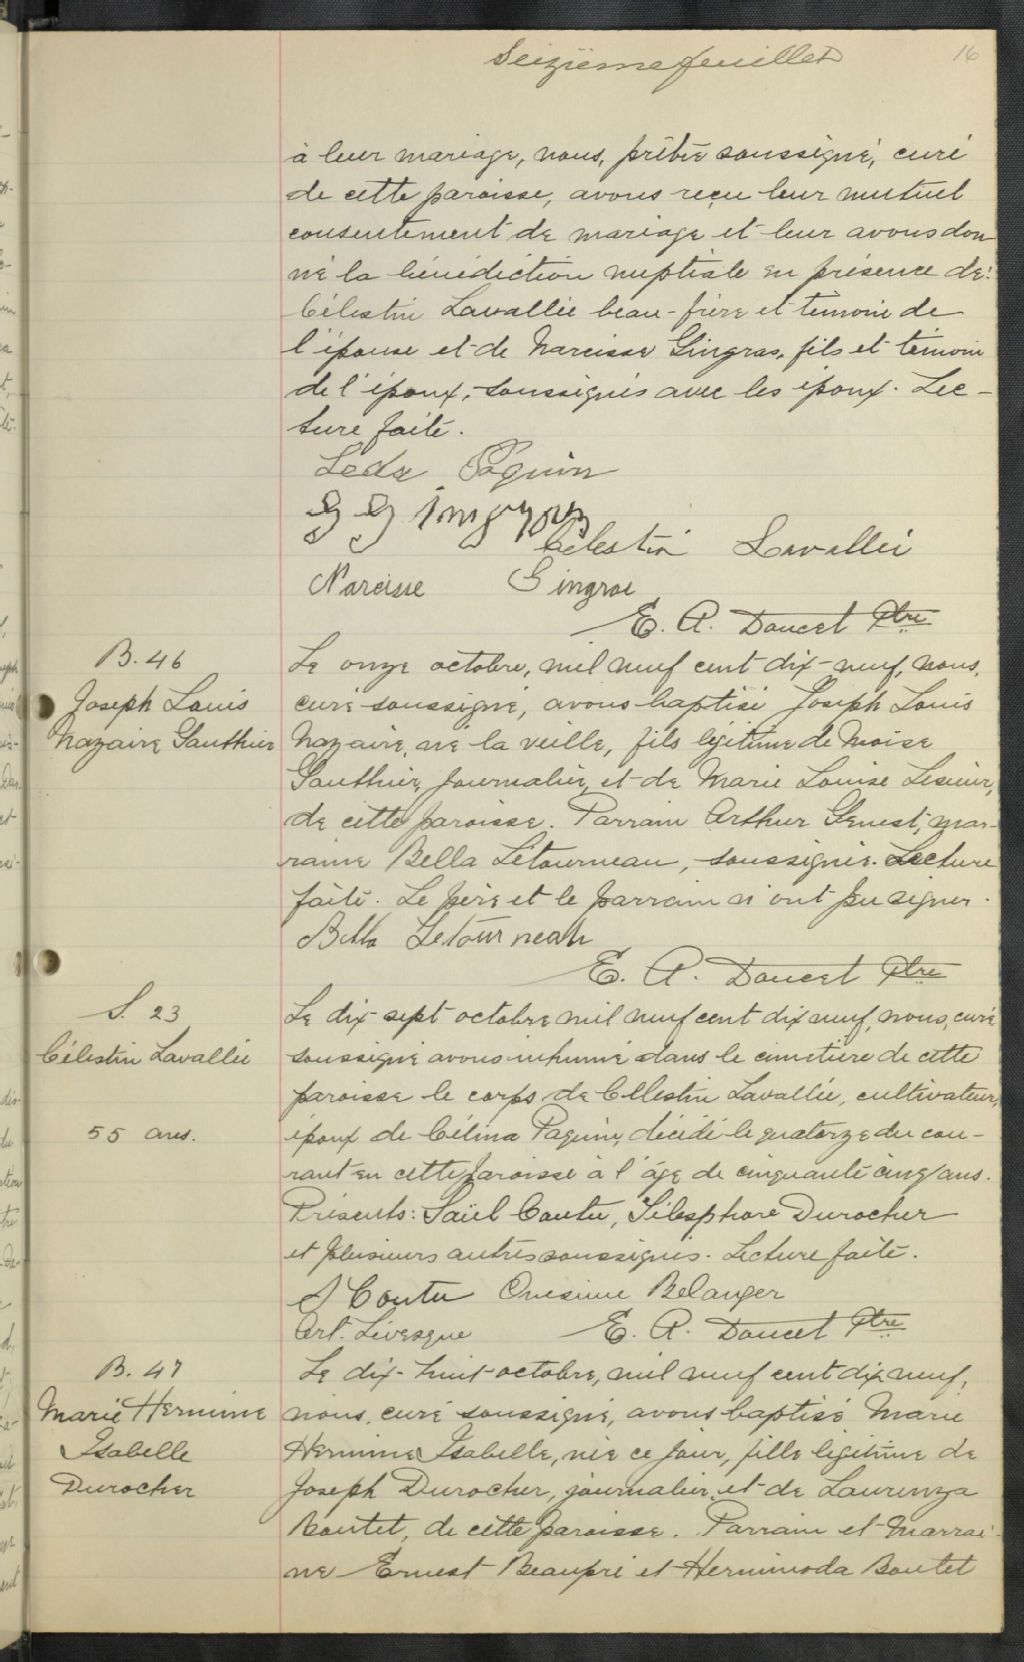 Seizième feuillet
16
à leur mariage, nous, prêtre soussigné, curé
de cette paroisse, avons reçu leur mutuel
consentement de mariage et leur avons don-
né la bénédiction nuptiale en présence de:
Célestin Lavallée beau-frère et témoin de
l'épouse et de Narcisse Gingras, fils et témoin
de l'époux, soussignés avec les époux. Lec-
ture faite.
Leda Paquin
Célestin Lavallée
Narcisse Gingras
E. A. Doucet Ptre
B. 46
Joseph Louis
Nazaire Gauthier
Le onze octobre, mil neuf cent dix-neuf, nous,
curé soussigné, avons baptisé Joseph Louis
Nazaire, né la veille, fils légitime de Moise
Gauthier, journalier, et de Marie Louise Lesieur,
de cette paroisse. Parrain Arthur Genest, mar-
raine Bella Létourneau, soussignée. Lecture
faite. Le père et le parrain n'ont pu signer.
Bella Letourneau
E. A. Doucet Ptre
S. 23
Célestin Lavallée
55 ans.
Le dix-sept octobre mil neuf cent dix neuf, nous, curé
soussigné avons inhumé dans le cimetière de cette
paroisse le corps de Célestin Lavallée, cultivateur,
époux de Célina Paquin, décédé le quatorze du cou-
rant en cette paroisse à l'âge de cinquante cinq ans.
Présents: Saül Coutu, Télesphore Durocher
et plusieurs autres soussignés. Lecture faite.
S Coutu Onesime Belanger
Art. Lévesque E. A. Doucet Ptre
B. 47
Marie Hermine
Isabelle
Durocher
Le dix-huit octobre, mil neuf cent dix neuf,
nous, curé soussigné, avons baptisé Marie
Hermine Isabelle, née ce jour, fille légitime de
Joseph Durocher, journalier, et de Laurenza
Boutet, de cette paroisse. Parrain et Marrai-
ne Ernest Beaupré et Herminoda Boutet